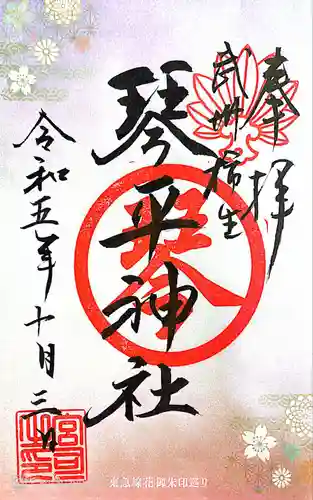 奉拝
武州柿生
琴平神社
令和五年十月三日
宮司之印
東急線花御朱印巡り